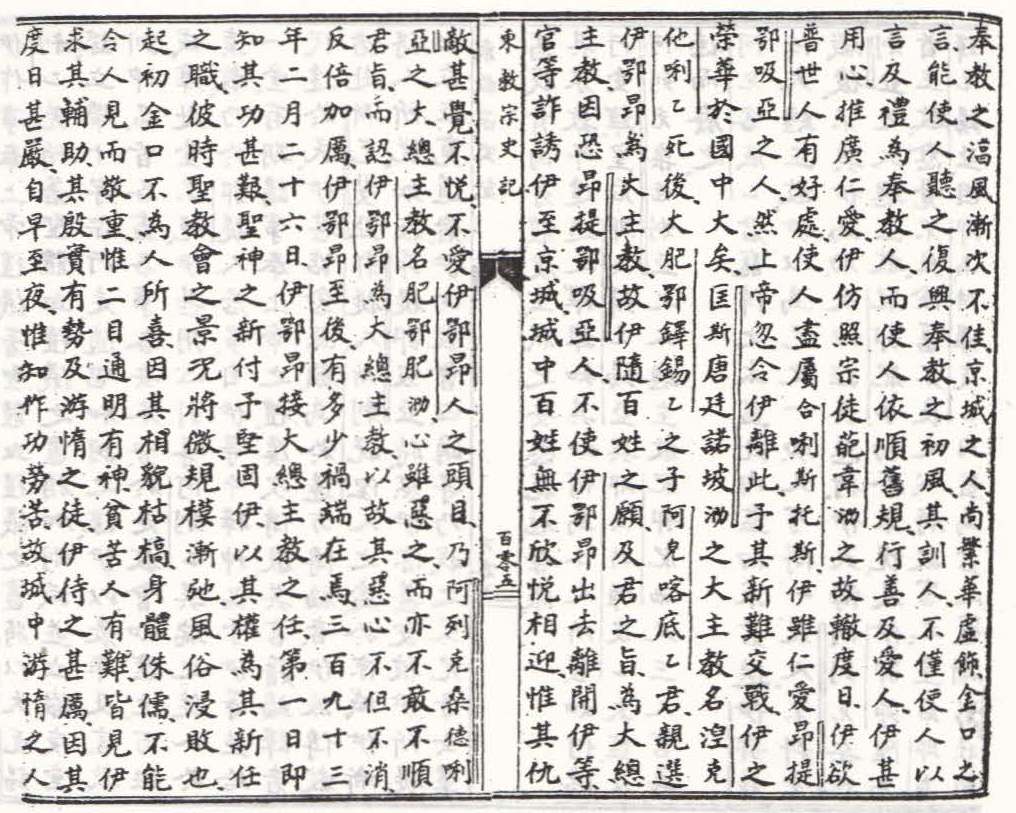 奉教之溫風漸次不佳京城之人尚繁華虛飾金口之
言能使人聽之復興奉教之初風其訓人不僅使人以
言及禮為奉教人而使人依順舊規行善及愛人伊甚
用心推廣仁愛伊仿照宗徒葩韋泐之故轍度日伊欲
普世人有好處使人盡屬合唎斯托斯伊雖仁愛昂提
鄂吸亞之人然上帝忽令伊離此予其新難交戰伊之
榮華於國中大矣匡斯唐廷諾坡泐之大主教名湼克
他唎乙死後大肥鄂鐸錫乙之子阿兒喀底乙君親選
伊鄂昂為大主教故伊隨百姓之願及君之旨為大總
主教因恐昂提鄂吸亞人不使伊鄂昂出去離開伊等
官等詐誘伊至京城城中百姓無不欣悅相迎惟其仇
東教宗史記
百零五
敵甚覺不悅不愛伊鄂昂人之頭目乃阿列克桑德唎
亞之大總主教名肥鄂肥泐心雖惡之而亦不敢不順
君旨而認伊鄂昂為大總主教以故其惡心不但不消
反倍加厲伊鄂昂至後有多少禍端在焉三百九十三
年二月二十六日伊鄂昂接大總主教之任第一日即
知其功甚艱聖神之新付予堅固伊以其權為其新任
之職彼時聖教會之景况將微規模漸弛風俗浸敗也
起初金口不為人所喜因其相貌枯槁身體侏儒不能
合人見而敬重惟二目通明有神貧苦人有難皆見伊
求其輔助其殷實有勢及游惰之徒伊侍之甚厲因其
度日甚嚴自早至夜惟知作功勞苦故城中游惰之人